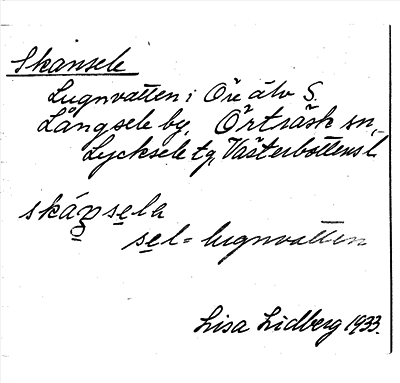 Skansele
Lugnvatten i Öre älv S.
Långsele by, Örträsk sn,
Lycksele tg, Västerbottens l.
skáṉsela
sel = lugnvatten
Lisa Lidberg 1933.